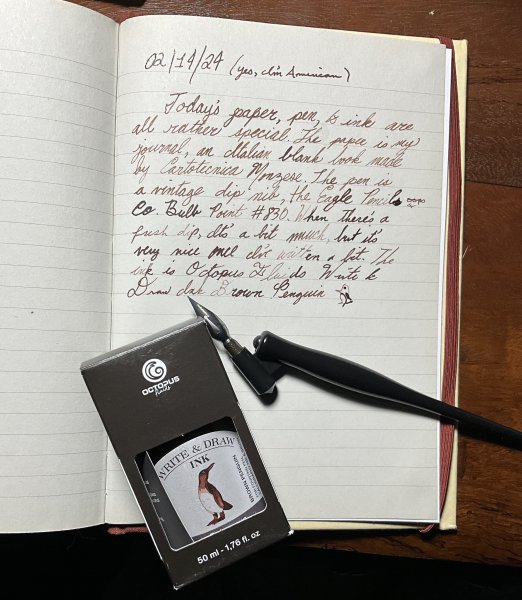 02/14/24 (yes, I'm American)
Today's paper, pen, & ink are
all rather special. The paper is my
journal, an Italian blank book made
by Cartotecnica Monzese. The pen is
a vintage dip nib, the Eagle Pencil
Co Bulb Point #830. When there's a
fresh dip, it's a bit much, but it's
very nice once I'm written a bit. The
ink is Octopus Fluids Write &
Draw ink Brown Penguin
OCTOPUS
fluids
WRITE & DRAW
INK
BROWN PENGUIN
50 ml - 1,76 fl. oz